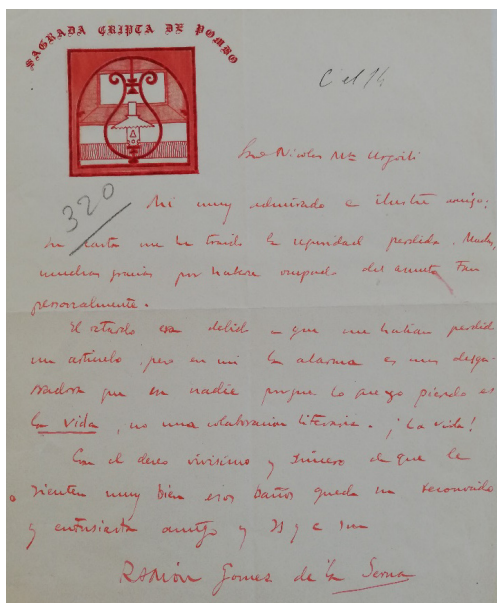 SAGRADA CRIPTA DE POMBO
C el 14
Nicolas Mª Urgoiti
320
Mi muy admirado e ilustre amigo:
Su carta me ha traido la seguridad perdida. Muchas,
muchas gracias por haberse ocupado del asunto tan
personalmente.
El retardo era debido a que me habian perdido
un artículo pero en mi la alarma es mas desga-
rradora que en nadie porque lo que yo pierdo es
la vida, no una colaboracion literaria. ¡La vida!
Con el deseo vivisimo y sincero de que le
sienten muy bien esos baños queda un reconocido
y entusiasta amigo y
RAMÓN Gomez de la Serna